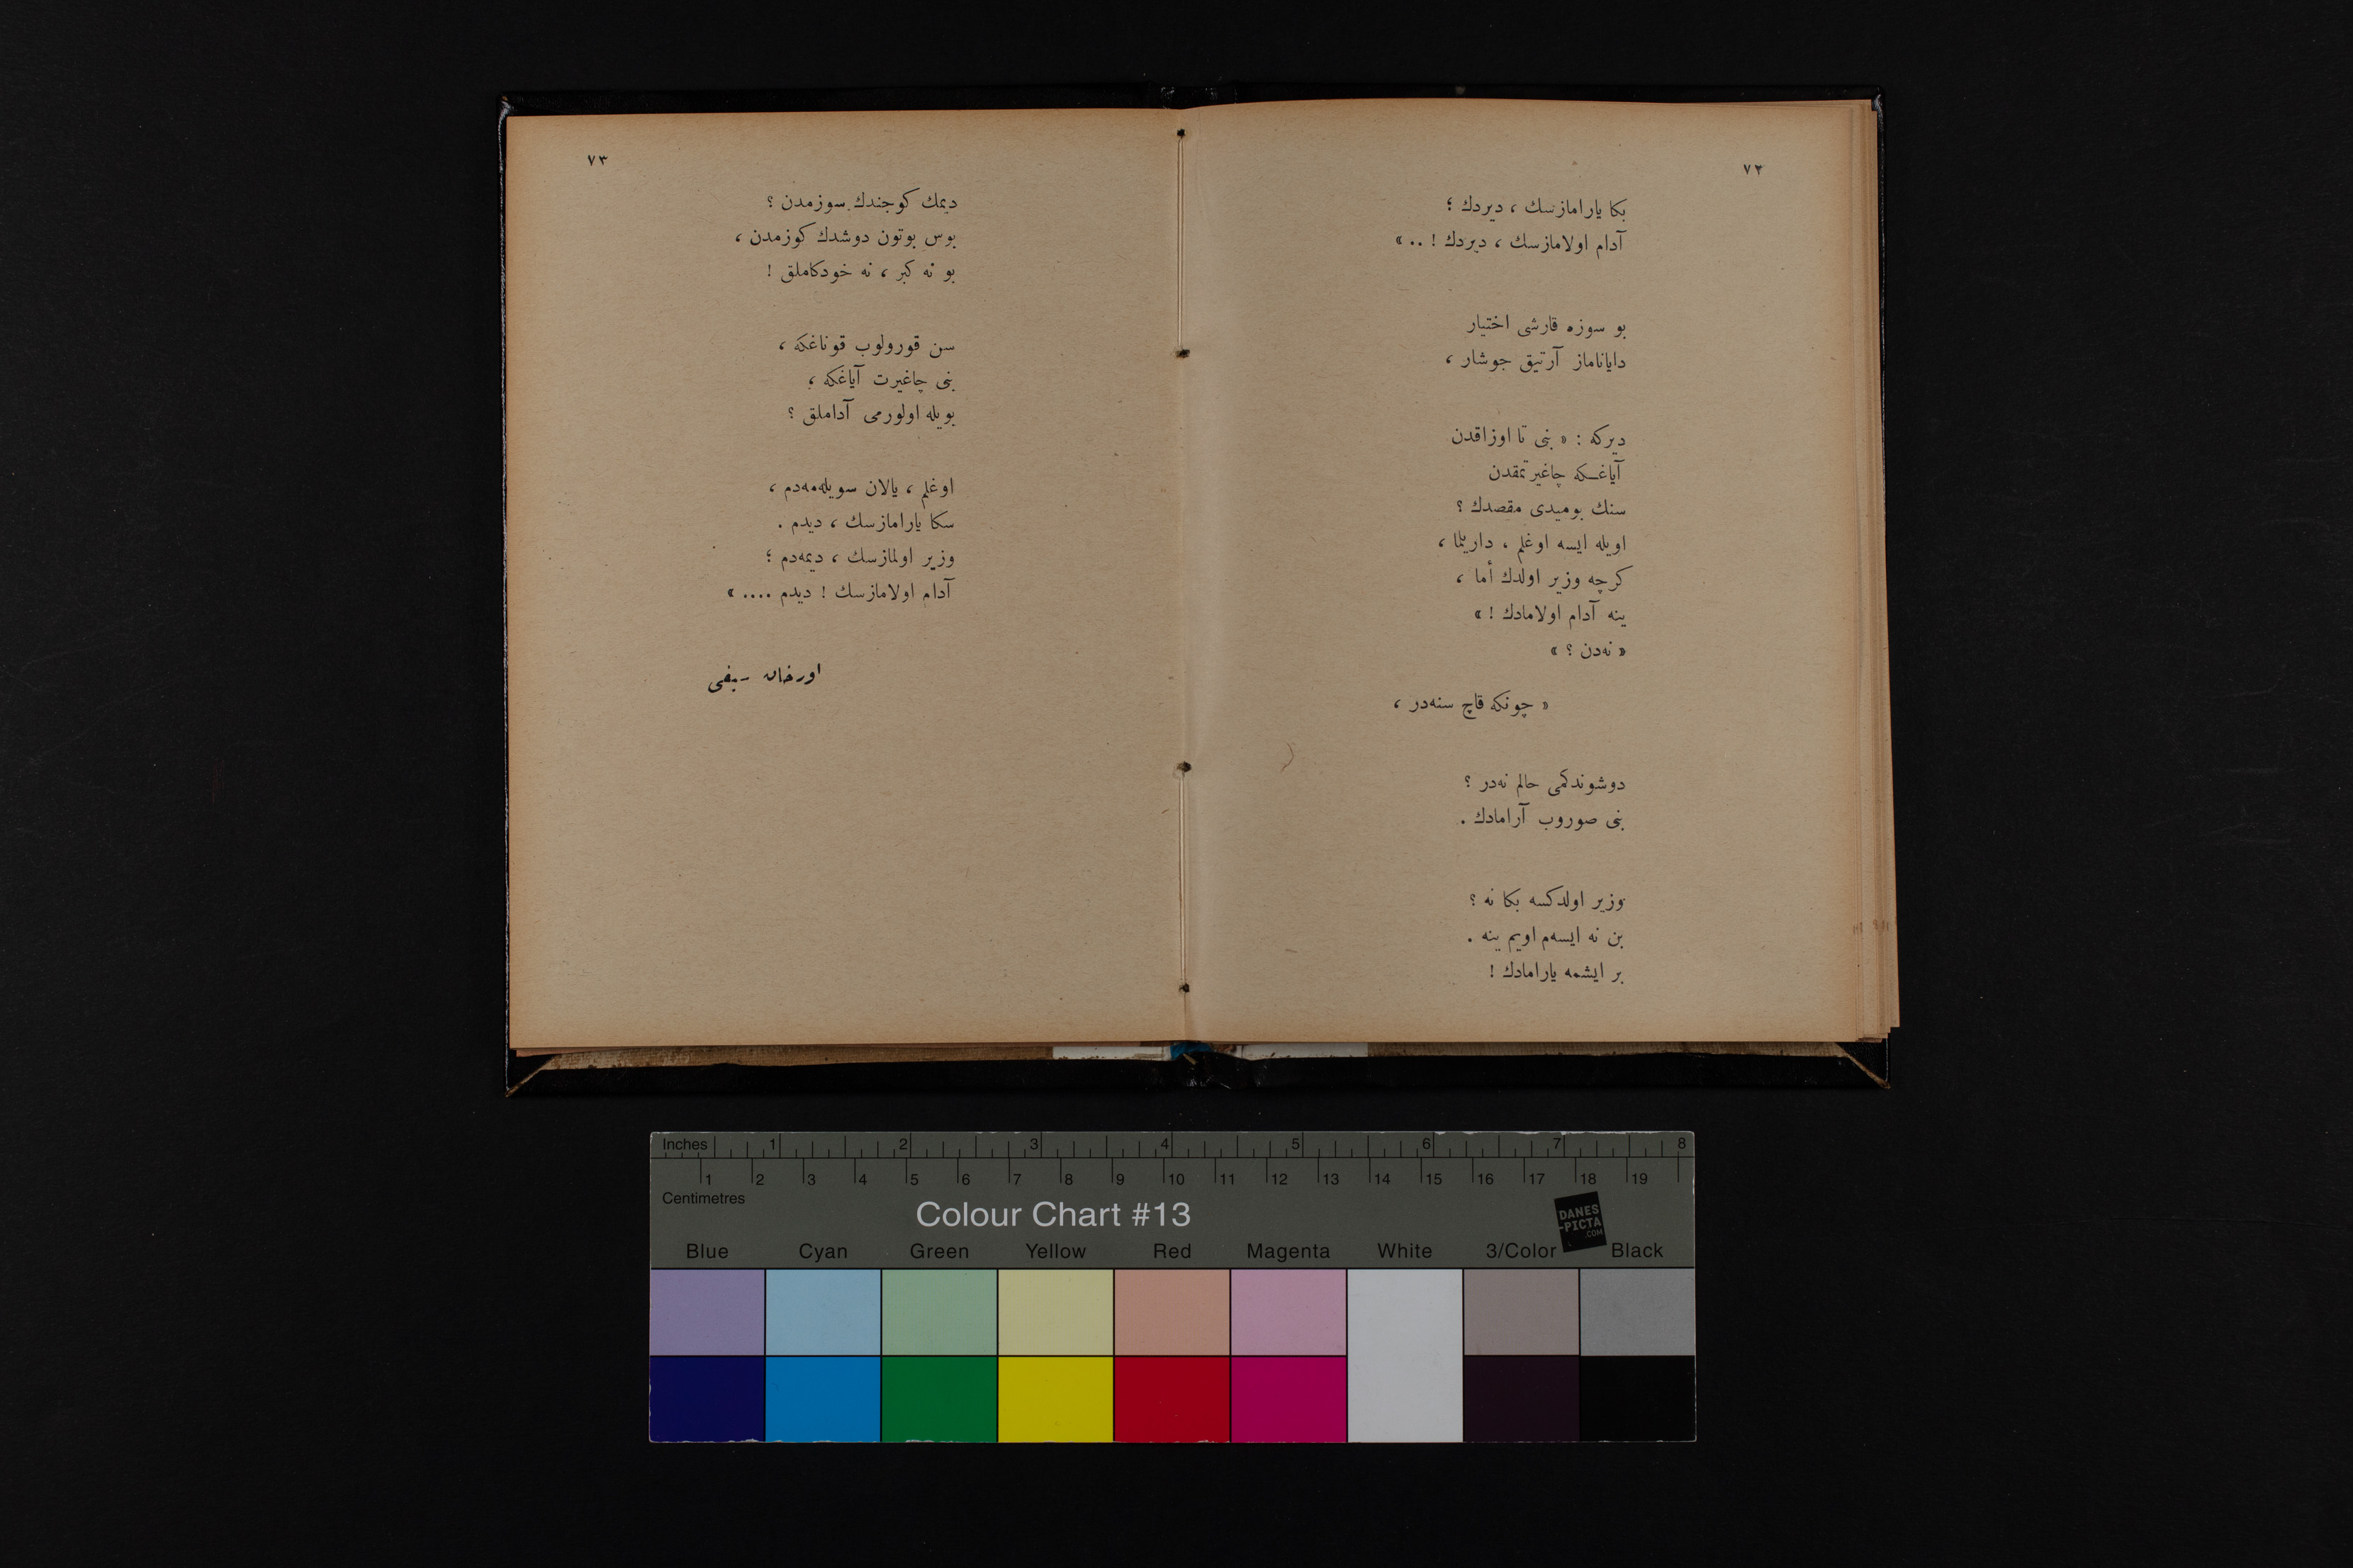 ٧٢
بكا يارامازسك ، ديردك ؛
آدام اولامازسك ، ديردك ! .. »
بو سوزه قارشى اختيار
داياناماز آرتيق جوشار ،
ديركه : « بنى تا اوزاقدن
آياغـكه چاغيرتمقدن
سنك بوميدى مقصدك ؟
اويله ايسه اوغلم ، داريلما ،
كرچه وزير اولدك أما ،
ينه آدام اولامادك ! »
« نه‌دن ؟ »
« چونكه قاچ سنه‌در ،
دوشوندكمى حالم نه‌در ؟
بنى صوروب آرامادك .
وزير اولدكسه بكا نه ؟
بن نه ايسه‌م اويم ينه .
بر ايشمه يارامادك !
٧٣
ديمك كوجندك سوزمدن ؟
بوس بوتون دوشدك كوزمدن ،
بو نه كبر ، نه خودكاملق !
سن قورولوب قوناغكه ،
بنى چاغيرت آياغكه ،
بويله اولورمى آداملق ؟
اوغلم ، يالان سويله‌مه‌دم ،
سكا يارامازسك ، ديدم .
وزير اولمازسك ، ديمه‌دم ؛
آدام اولامازسك ! ديدم .... »
اورخان سيفى
Inches 1 2 3 4 5 6 7 8
1 2 3 4 5 6 7 8 9 10 11 12 13 14 15 16 17 18 19
Centimetres
Colour Chart #13
DANES
-PICTA
.COM
Blue Cyan Green Yellow Red Magenta White 3/Color Black